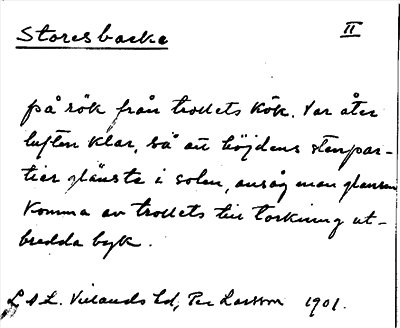 Storesbacke
II
på rök från trollets kök. Var åter
luften klar, så att höjdens stenpar-
tier glänste i solen, ansåg man glansen
komma av trollets till torkning ut-
bredda byk.
L o L. Vislands hd, Per Larsson 1901.